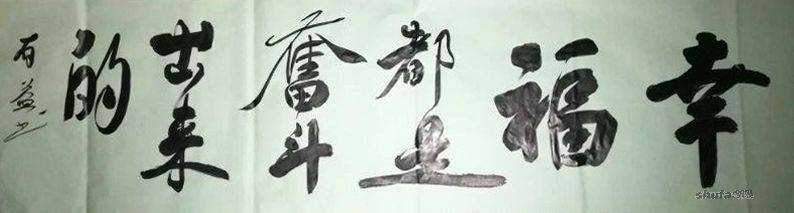 幸福都是奮斗出来的
有益书
shufa